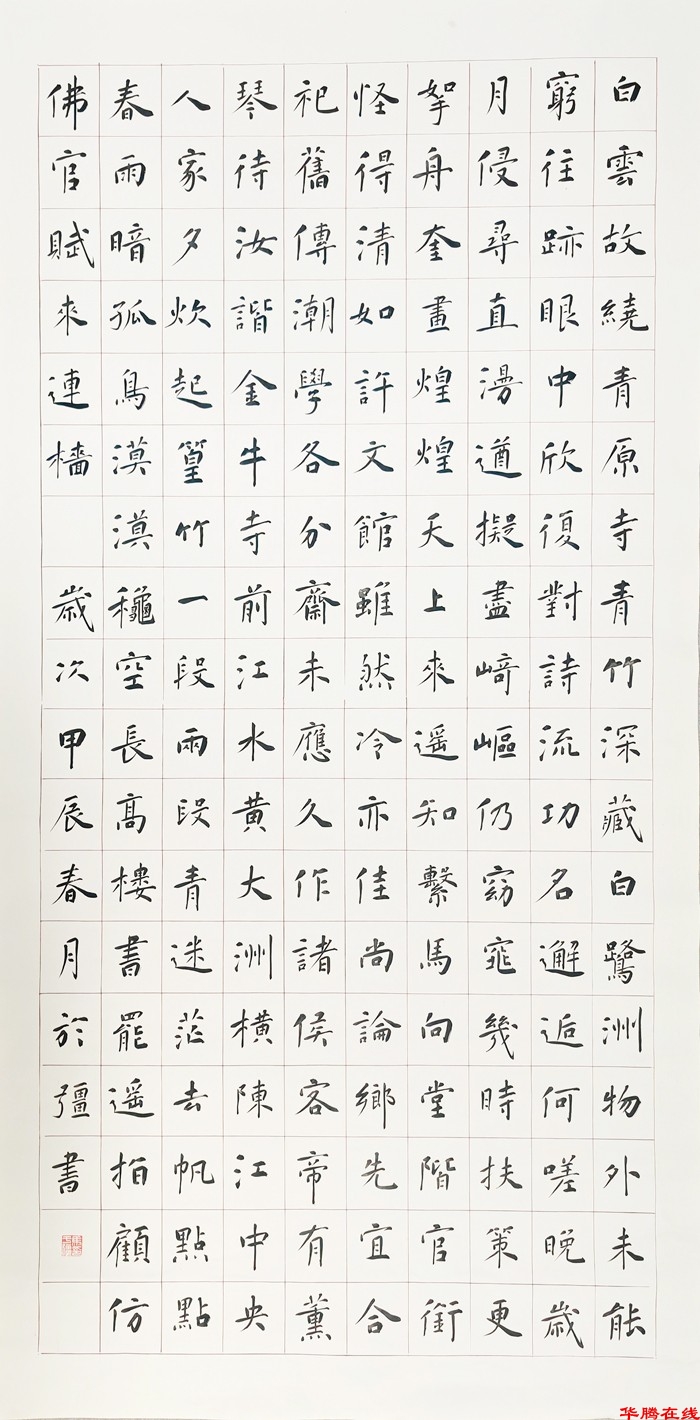 白雲故繞青原寺青竹深藏白鷺洲物外未能
窮往跡眼中欣復對詩流功名邂逅何嗟晚歲
月侵尋直漫遒擬盡﨑嶇仍窈窕幾時扶策更
挐舟奎畫煌煌天上來遥知繫馬向堂階官銜
怪得清如許文館雖然冷亦佳尚論鄉先宜合
祀舊傳潮學各分齋未應久作諸侯客帝有薰
琴待汝諧金牛寺前江水黄大洲橫陳江中央
人家夕炊起篁竹一段雨段青迷茫去帆點點
春雨暗孤鳥漠漠龝空長高樓書罷遥拍顧仿
佛官賦來連檣 歲次甲辰春月於彊書
华腾在线